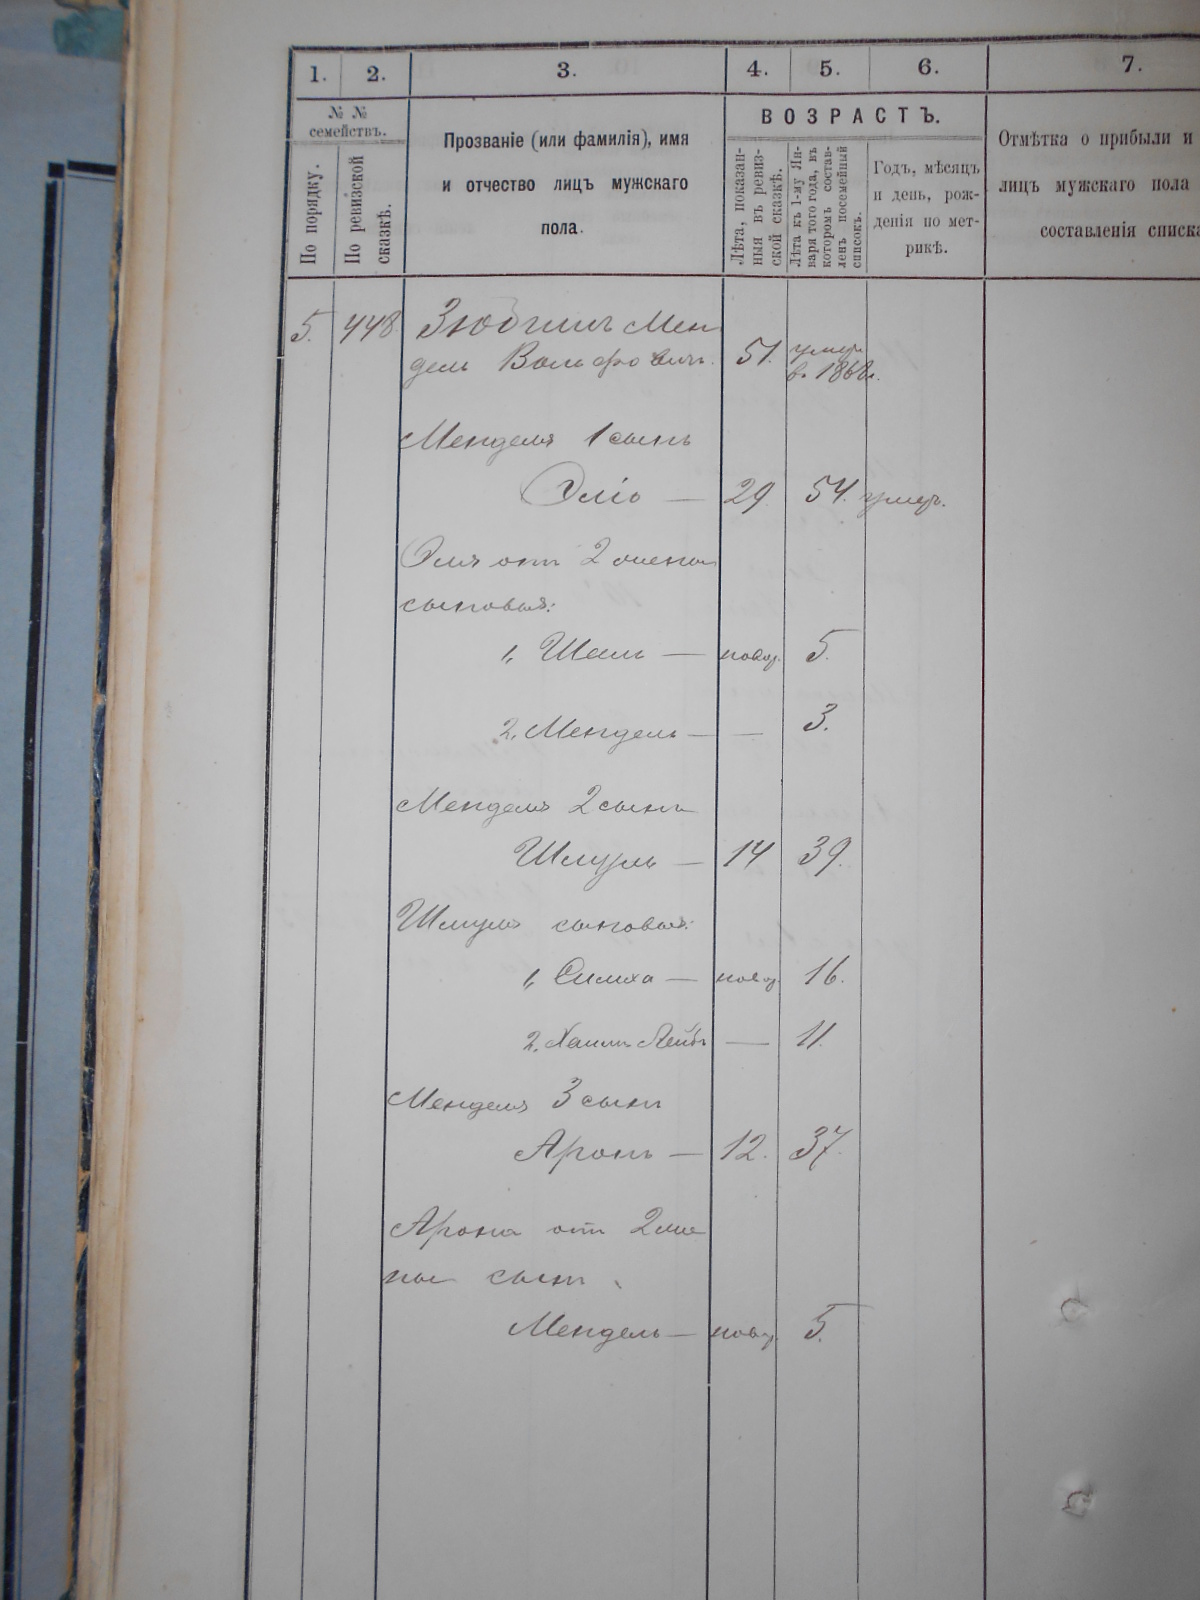 1. 2. 3. 4. 5. 6. 7.
№ № семействъ.
По порядку.
По ревизской сказкѣ.
Прозваніе (или фамилія), имя
и отчество лицъ мужскаго
пола.
ВОЗРАСТЪ.
Лѣта, показан-
ныя въ ревиз-
ской сказкѣ.
Лѣта къ 1-му Ян-
варя того года, въ
которомъ состав-
ленъ посемейный
списокъ.
Годъ, мѣсяцъ
и день, рож-
денія по мет-
рикѣ.
Отмѣтка о прибыли и
лицъ мужскаго пола
составленія списка
5. 448. Мен
дель Вольфовичъ. 51. умеръ
въ 1868 г.
Менделя 1 сынъ
Эліо — 29 54. умеръ.
Эля отъ 2 жены
сыновья:
1, — новор. 5.
2. Мендель — — 3.
Менделя 2 сынъ
Шмуль — 14 39.
Шмуля сыновья:
1, Симха — новор 16.
2. Хаимъ Лейбъ — 11.
Менделя 3 сынъ
Аронъ — 12. 37.
Арона отъ 2 же
ны сынъ
Мендель — новор 5.